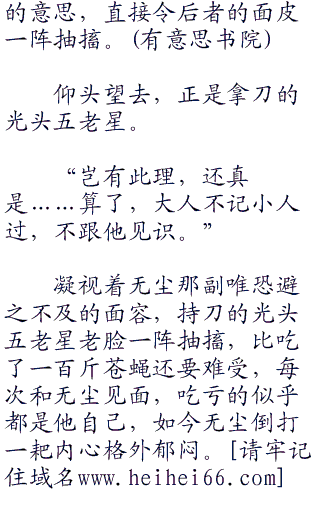 的意思，直接令后者的面皮
一阵抽搐。(有意思书院)
仰头望去，正是拿刀的
光头五老星。
“岂有此理，还真
是……算了，大人不记小人
过，不跟他见识。”
凝视着无尘那副唯恐避
之不及的面容，持刀的光头
五老星老脸一阵抽搐，比吃
了一百斤苍蝇还要难受，每
次和无尘见面，吃亏的似乎
都是他自己，如今无尘倒打
一耙内心格外郁闷。[请牢记
住域名www.heihei66.com]